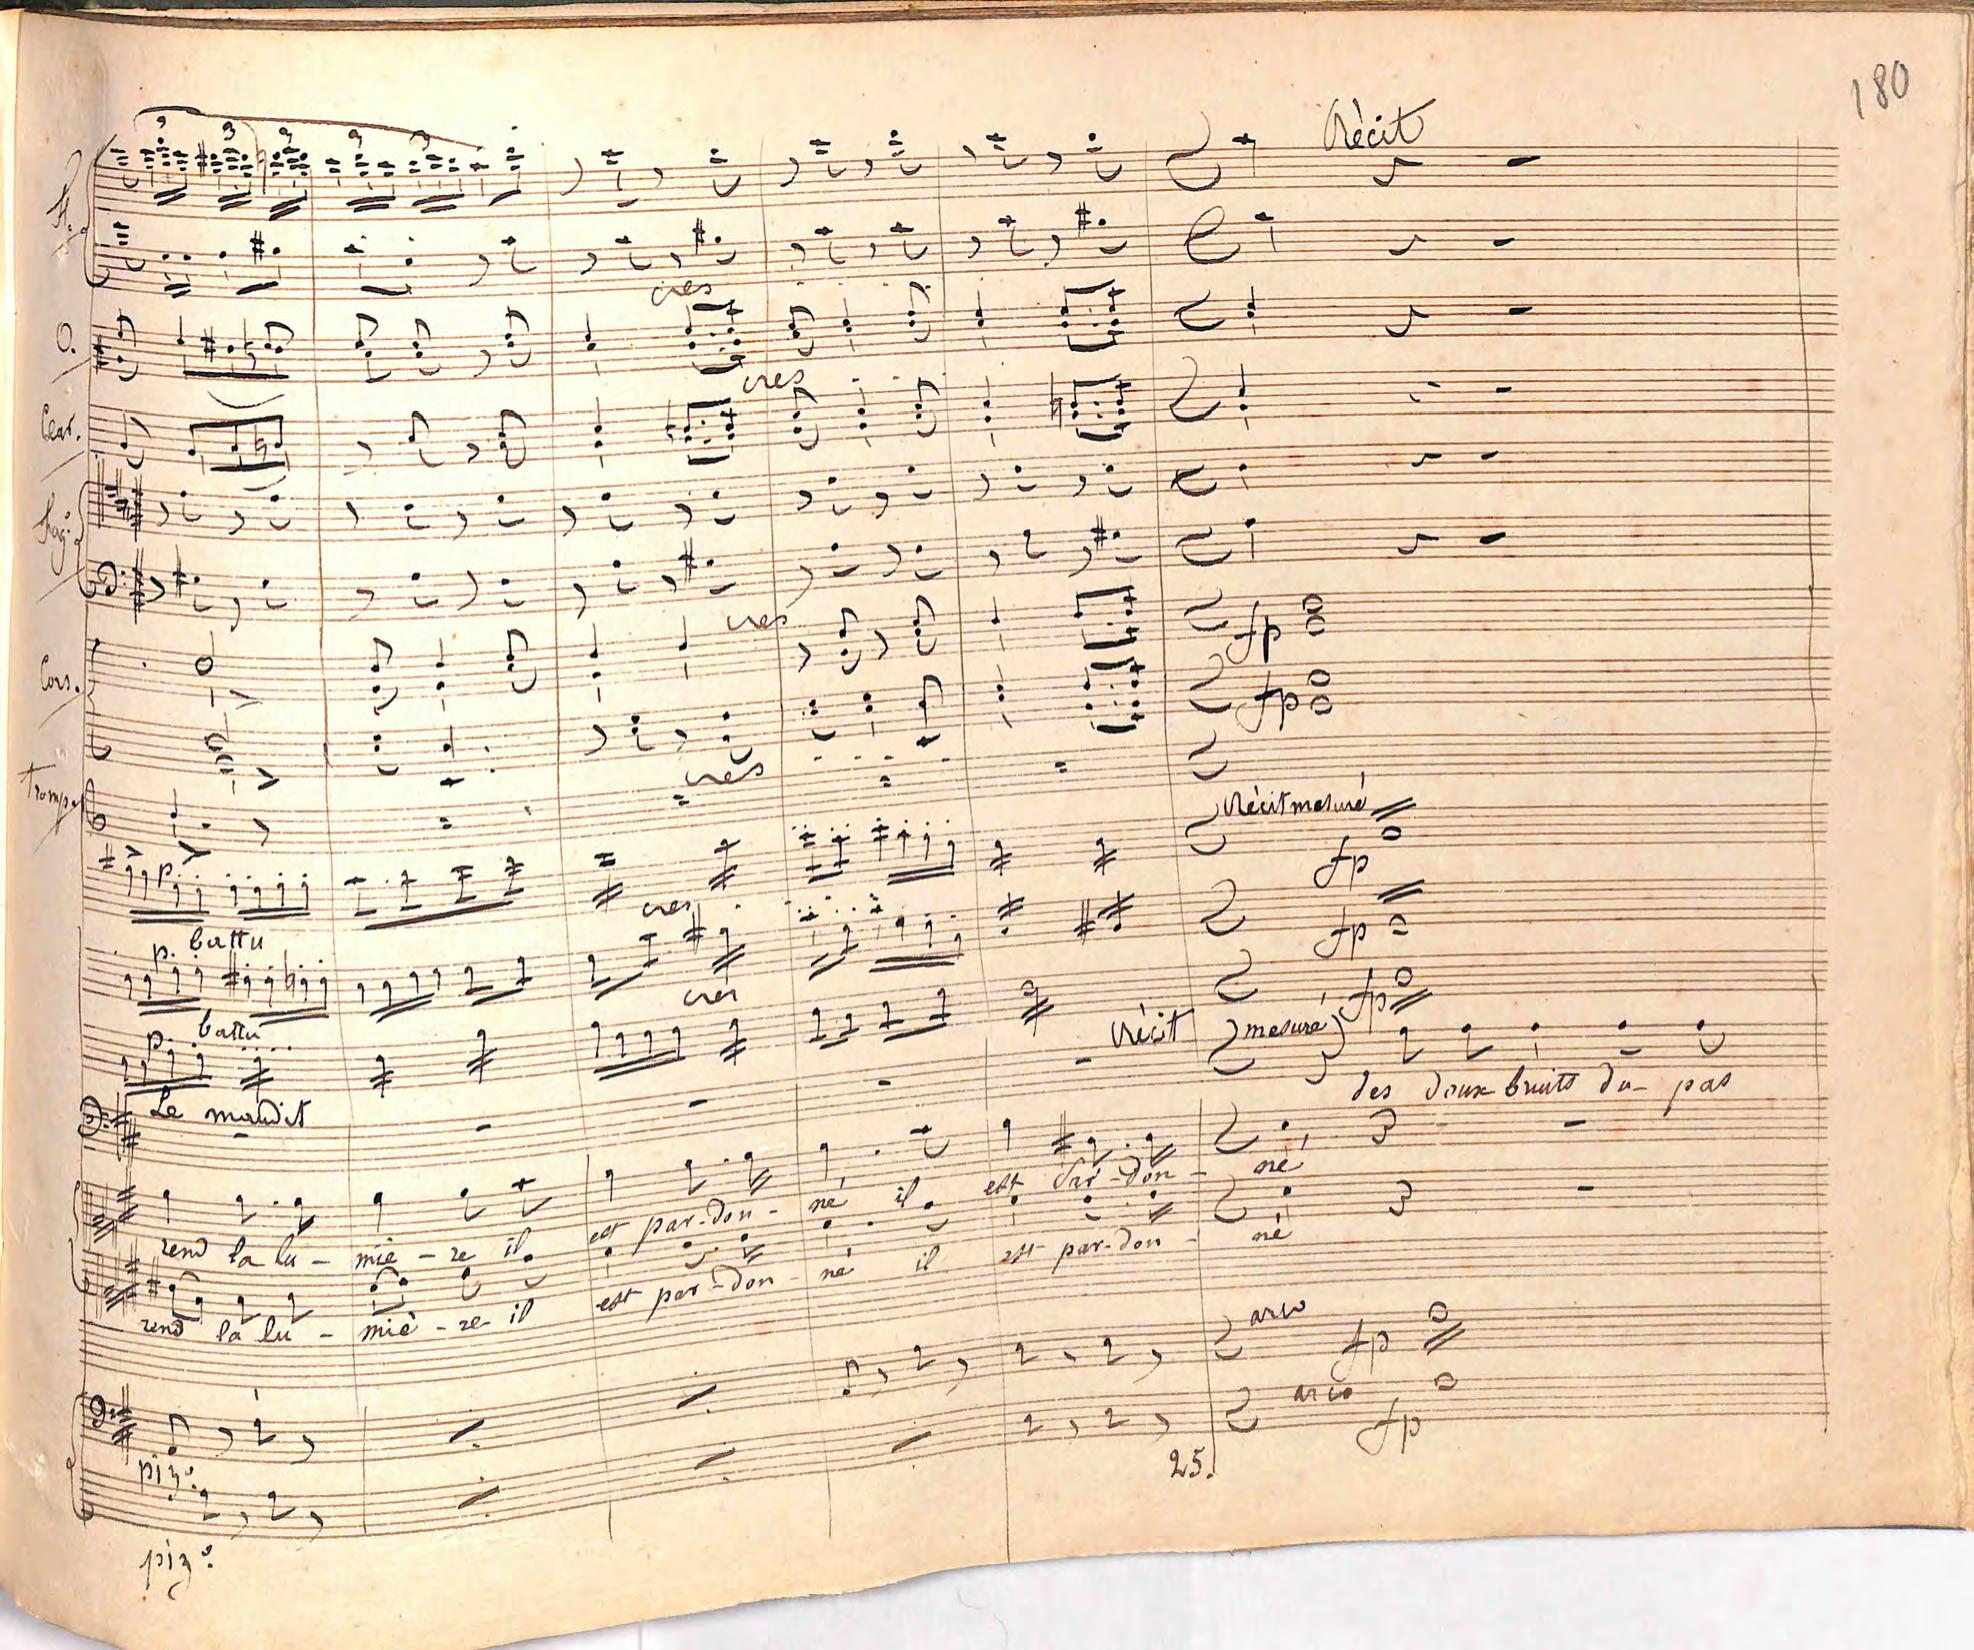 180
Récit
fl.
O.
cres
cres
Clar.
fag:
cres
Cors.
fp
fp
cres
Tromp.
Récit mesuré
p.
fp
cres
fp
battu
p.
cres
fp
battu
p.
Récit mesuré
Le maudit
des doux bruits du - pas
rend la lu - miè - re il est par - don - né il est par - don - né
rend la lu - miè - re il est par - don - né il est par - don - né
arco
fp
piz:
arco
fp
25.
piz: